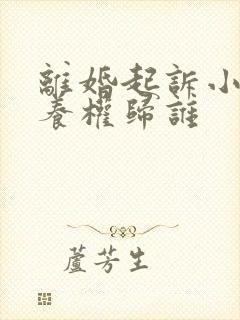 離婚起訴小
養權歸誰
蘆芳生